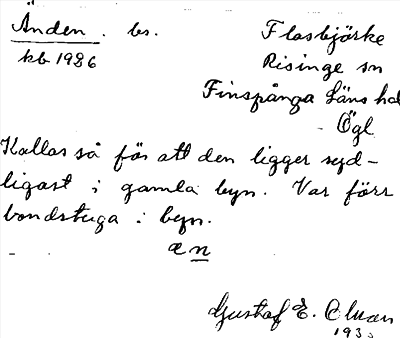 Änden . bs. Flasbjörke
kb 1986 Risinge sn
Finspånga Läns hd
Ögl
Kallas så för att den ligger syd-
ligast i gamla byn. Var förr
bondstuga i byn.
æn
Gustaf E.